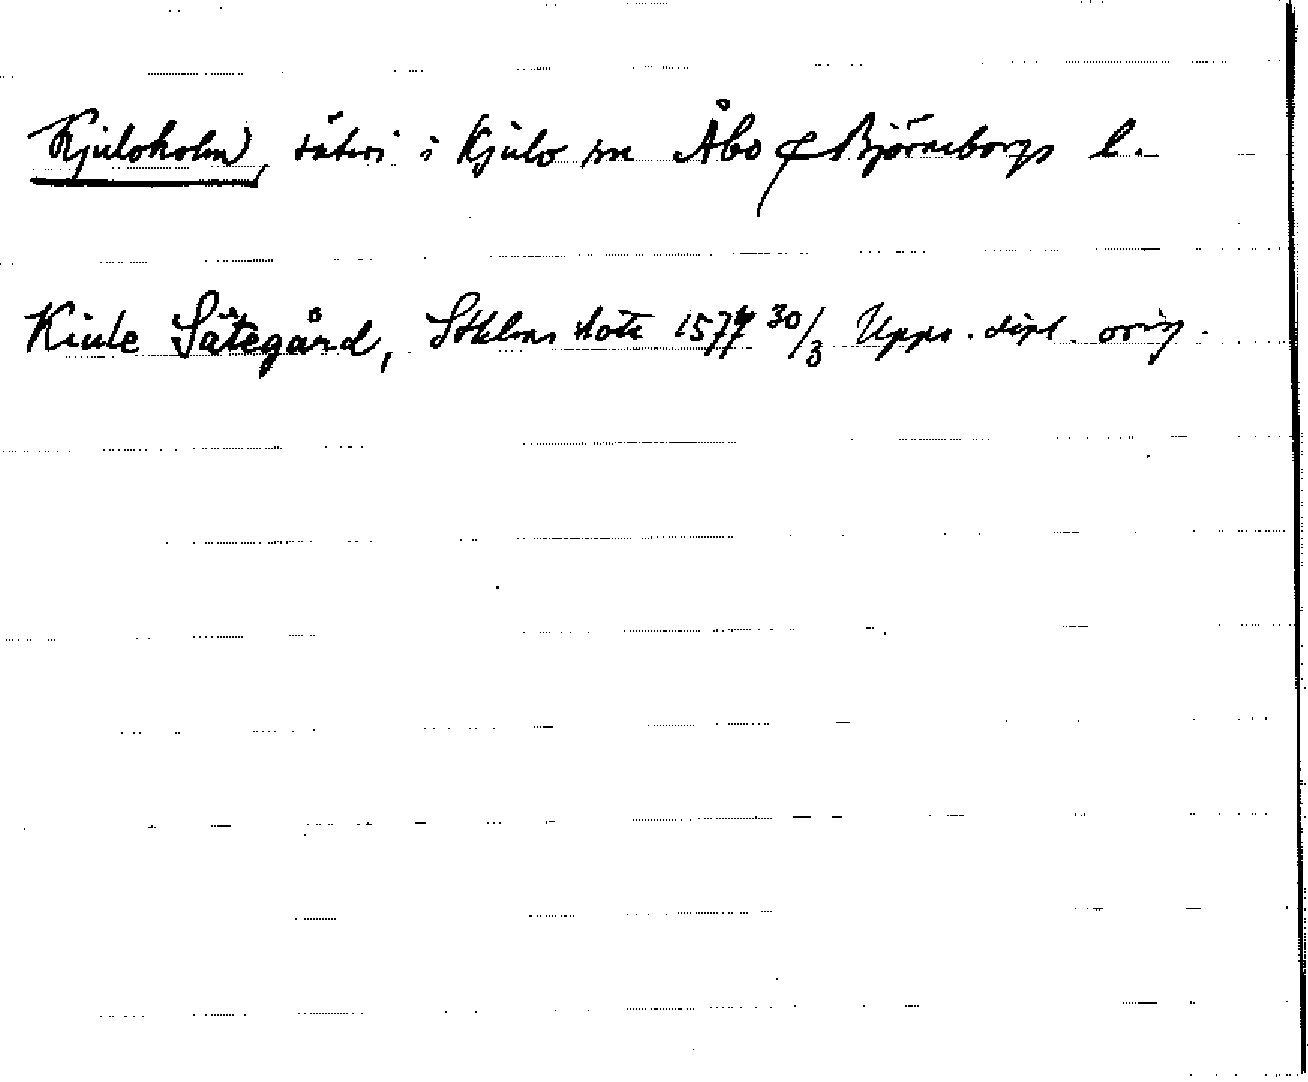 Kjuloholm, säteri i Kjulo sn Åbo & Björneborgs l.
Kiule Sätegård, Stklms slott 1577 30/3 Upps. dipl. orig.